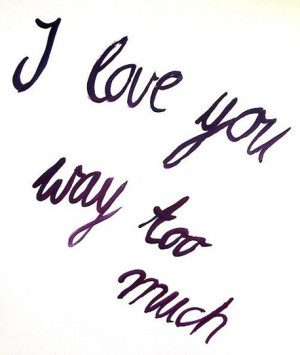 I love you
way too
much